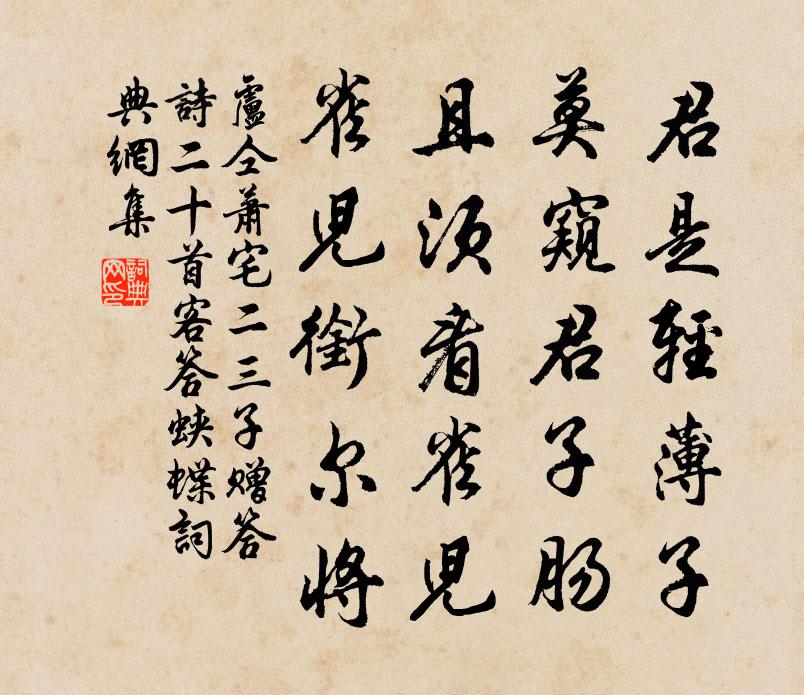 君是輕薄子
莫窺君子腸
且須看雀兒
雀兒銜尔將
盧仝蕭宅二三子贈答
詩二十首客答蛱蝶詞
典網集
詞典
网印